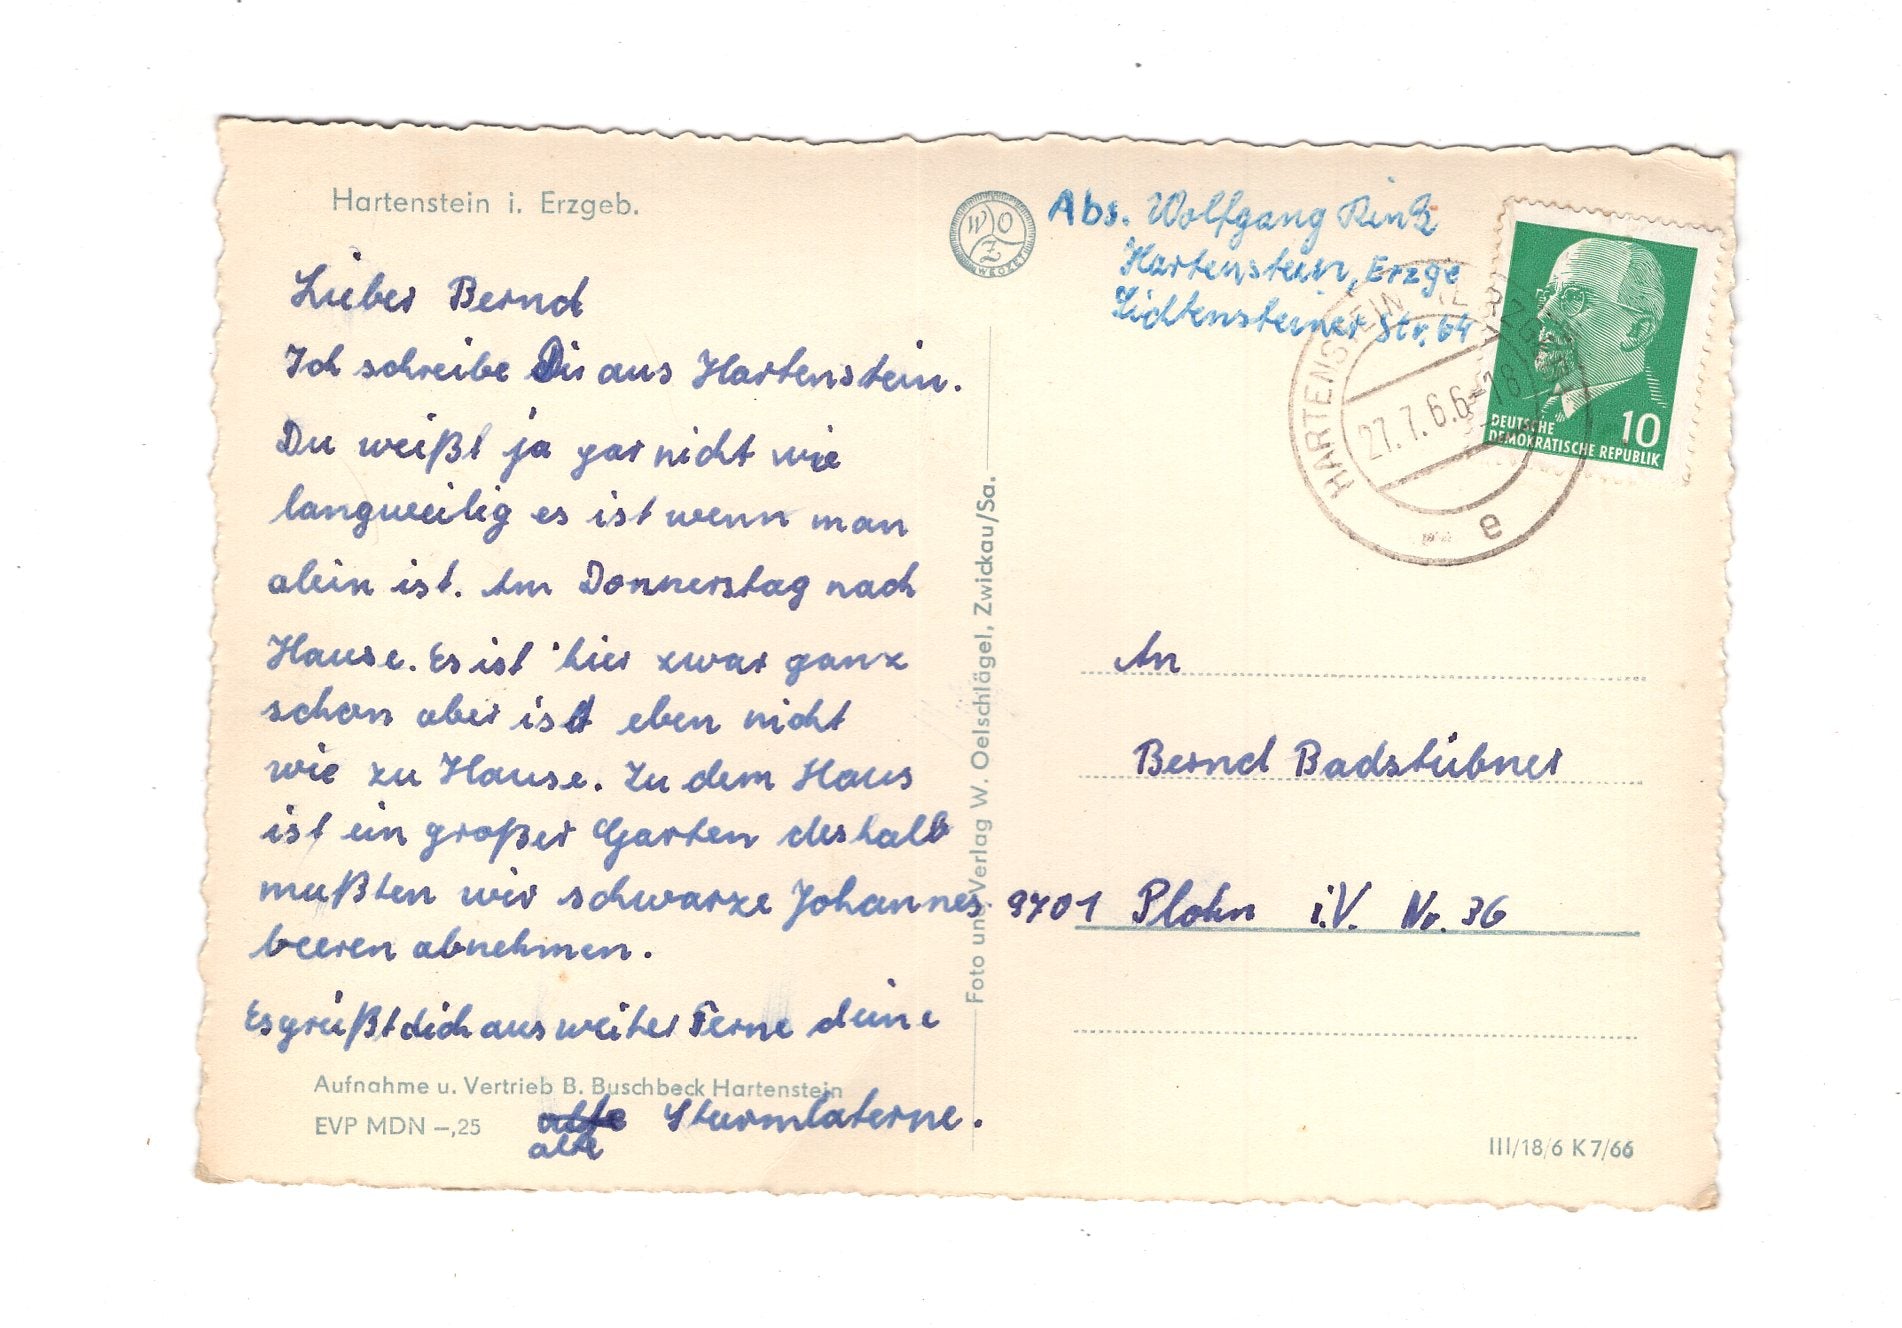 Hartenstein i. Erzgeb.
Lieber Bernd
Ich schreibe Dir aus Hartenstein.
Du weißt ja gar nicht wie
langweilig es ist wenn man
alein ist. Am Donnerstag nach
Hause. Es ist hier zwar ganz
schon aber ist eben nicht
wie zu Hause. Zu dem Haus
ist ein großer Garten deshalb
mußten wir schwarze Johannes
beeren abnehmen.
Es greißt dich aus weiter Ferne deine
alte Sturmlaterne.
Aufnahme u. Vertrieb B. Buschbeck Hartenstein
EVP MDN –,25
W O Z
WEOZET
Foto und Verlag W. Oelschlägel, Zwickau/Sa.
Abs. Wolfgang
Hartenstein, Erzge
Lichtensteiner Str. 64
HARTENSTEIN
27.7.66-18
e
10
DEUTSCHE
DEMOKRATISCHE REPUBLIK
An
Bernd Badstübner
9701 Plohn i.V. Nr. 36
III/18/6 K 7/66